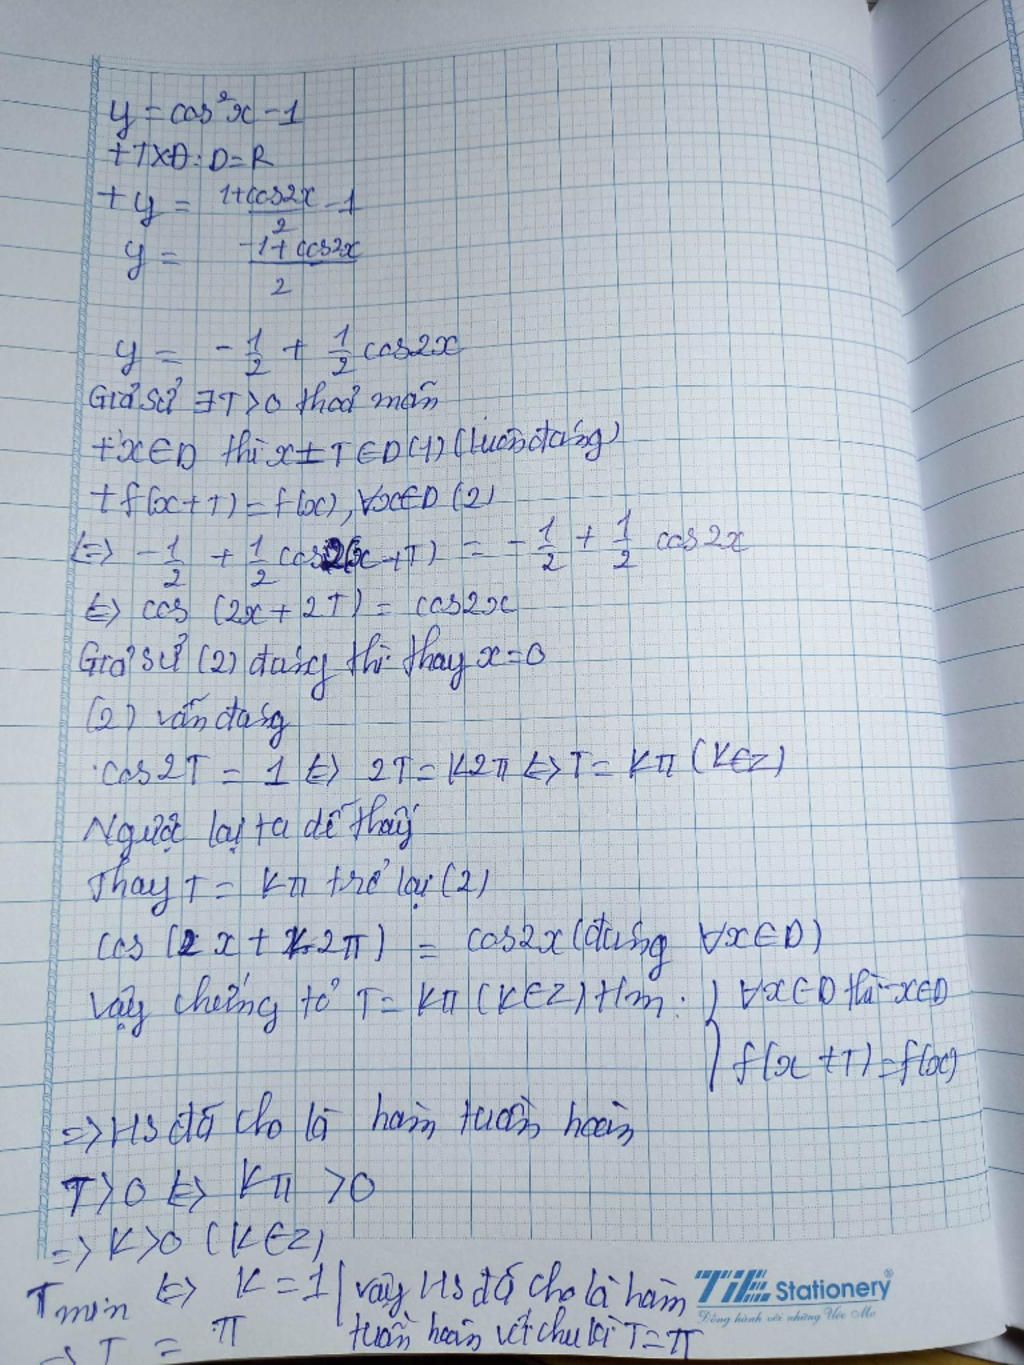 y = cos²x - 1
+ TXĐ: D = R
+ y = (1+cos2x)/2 - 1
y = (-1+cos2x)/2
y = -1/2 + 1/2 cos2x
Giả sử ∃T>0 thoả mãn
+ x∈D thì x±T∈D (1) (luôn đúng)
+ f(x+T) = f(x), ∀x∈D (2)
<=> -1/2 + 1/2 cos2(x+T) = -1/2 + 1/2 cos2x
<=> cos (2x+2T) = cos2x
Giả sử (2) đúng thì thay x=0
(2) vẫn đúng
cos2T = 1 <=> 2T = k2π <=> T = kπ (k∈Z)
Ngược lại ta dễ thấy
Thay T = kπ trở lại (2)
cos (2x + k2π) = cos2x (đúng ∀x∈D)
Vậy chứng tỏ T = kπ (k∈Z) thm: } ∀x∈D thì -x∈D
f(x+T) = f(x)
=> HS đã cho là hàm tuần hoàn
T>0 <=> kπ >0
=> k>0 (k∈Z)
Tmin <=> k = 1 | vậy HS đã cho là hàm
=> T = π tuần hoàn với chu kì T=π
TiE Stationery®
Đồng hành với những Ước Mơ